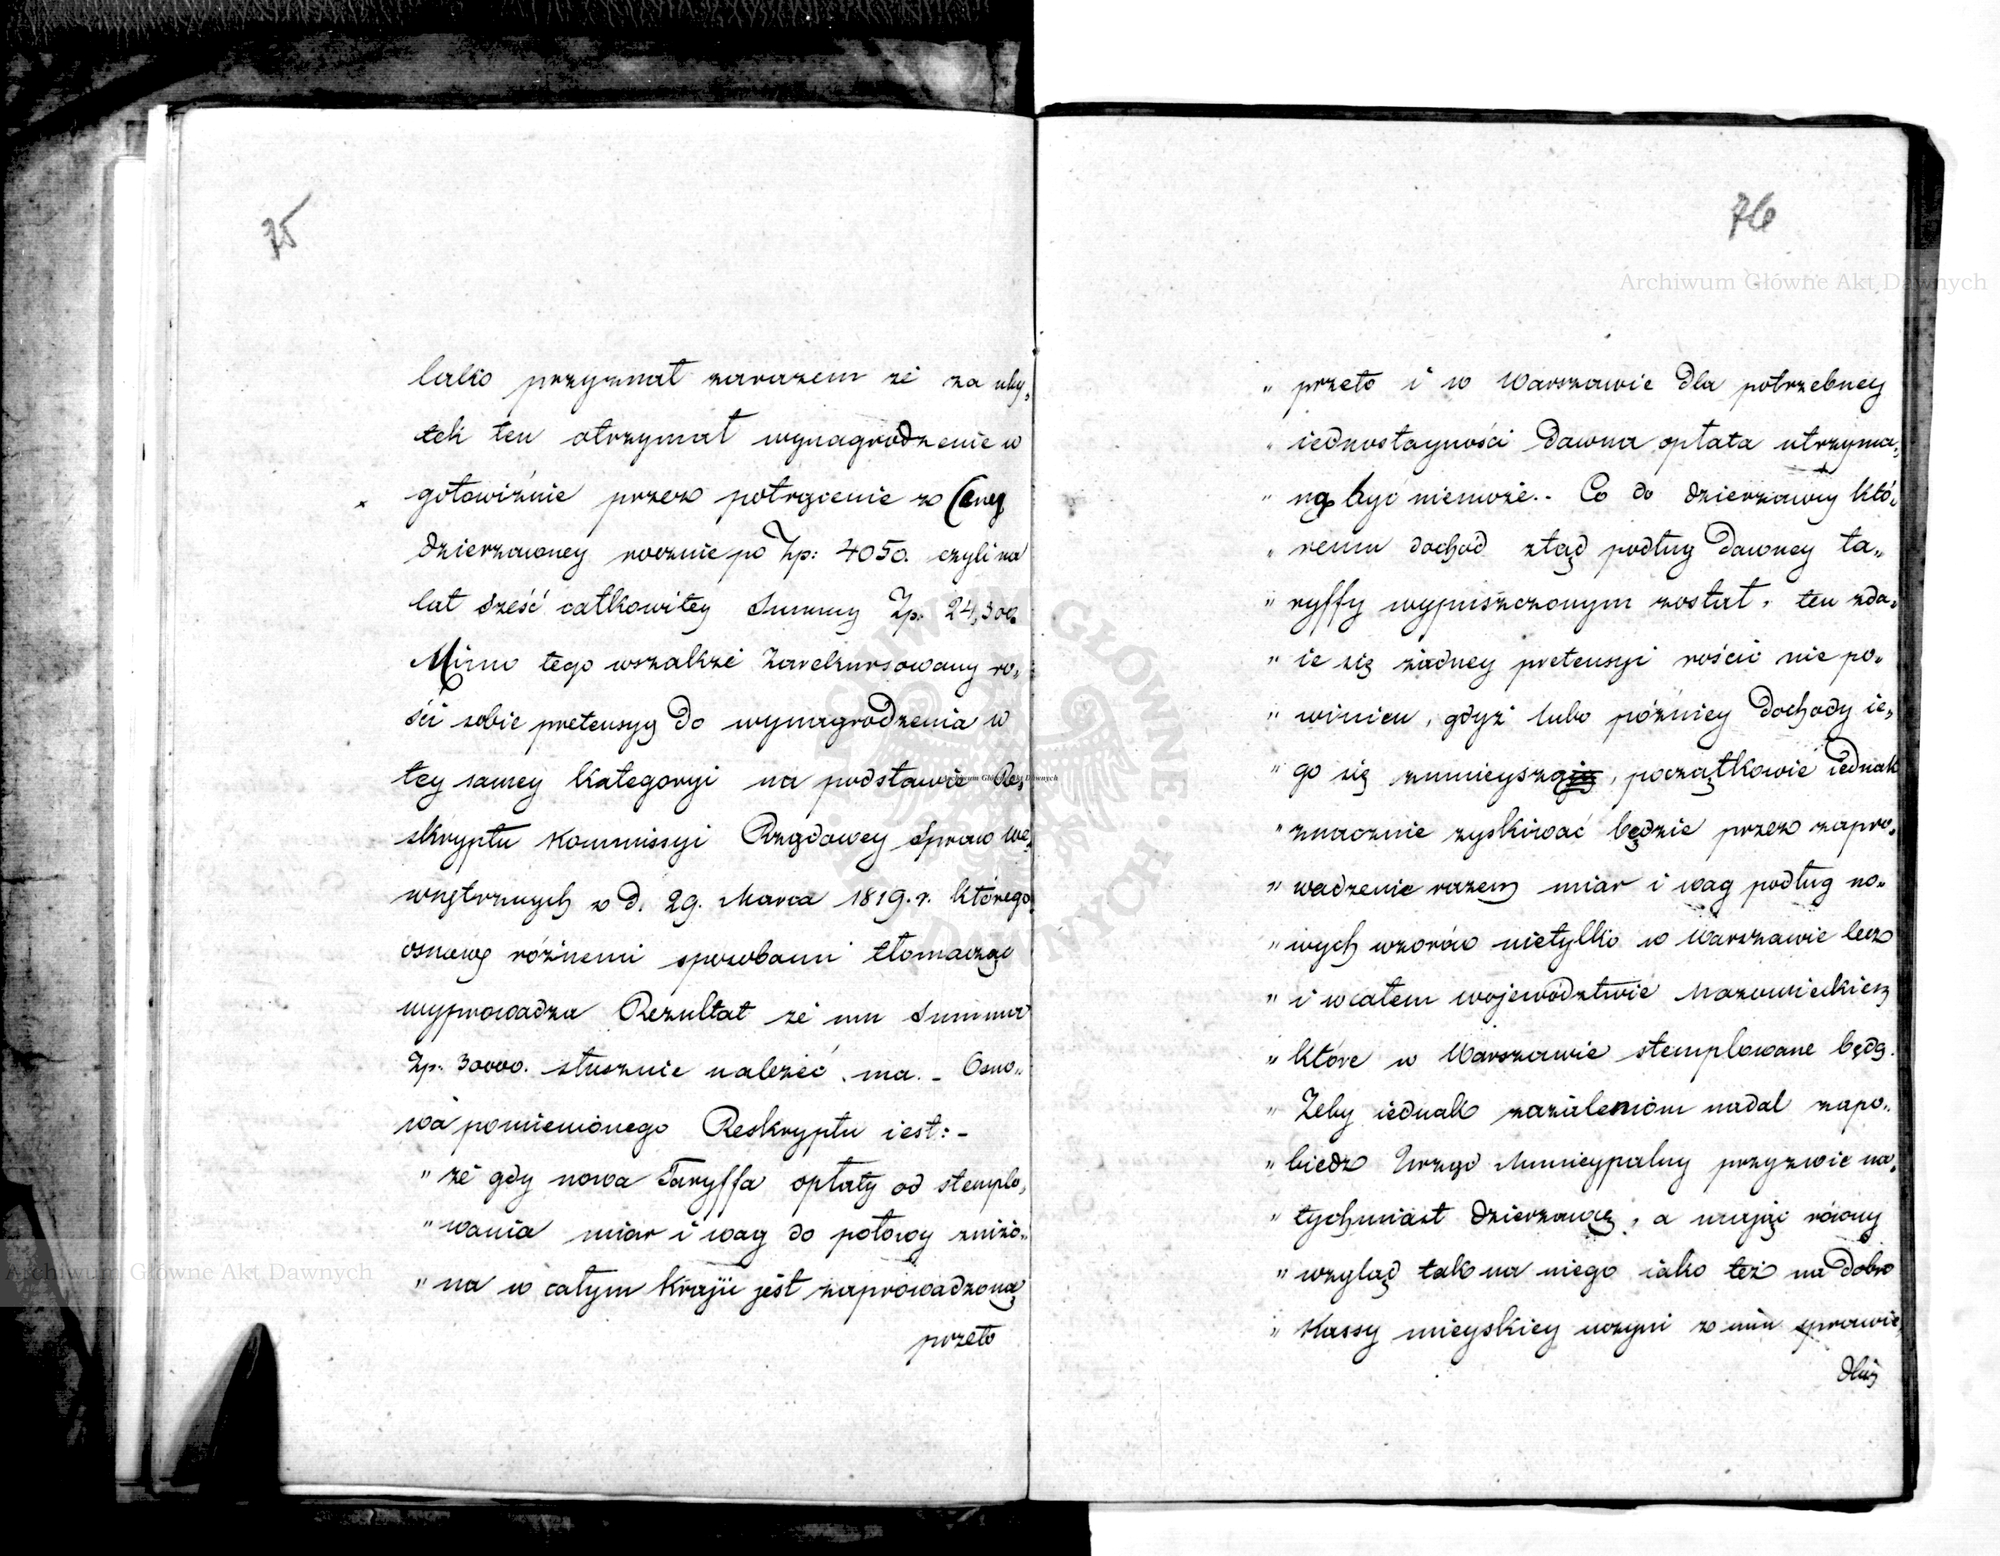 75
lako przyznał zarazem że za uby,
tek ten otrzymał wynagrodzenie w
gotowiźnie przez potrącenie z Ceny
dzierzawney rocznie po Zp: 4050. czyli na
lat sześć całkowitey Summy Zp. 24,300.
Mimo tego wszakże Zarekursowany ro,
ści sobie pretensyą do wynagrodzenia w
tey samey Kategoryi na podstawie Re,
skryptu Kommissyi Rządowey Spraw We,
wnętrznych z d. 29. Marca 1819. r. którego
osnowę różnemi sposobami tłomacząc
wyprowadza Rezultat że mu Summa
Zp. 30000. słusznie należeć ma. - Osno„
wa pomienionego Reskryptu iest: -
„ że gdy nowa Taryffa opłaty od stemplo,
„ wania miar i wag do połowy zniżo„
„ na w całym Kraju jest zaprowadzoną
przeto
76
„ przeto i w Warszawie dla potrzebney
„ iednostayności dawna opłata utrzyma,
„ ną być niemoże. - Co do dzierzawcy któ,
„ remu dochód ztąd podług dawney ta„
„ ryffy wypuszczonym został, ten zda„
„ ie się żadney pretensyi rościć nie po„
„ winien, gdyż lubo późniey dochody ie„
„ go się zmnieyszą, początkowie iednak
„ znacznie zyskiwać będzie przez zapro„
„ wadzenie razem miar i wag podług no„
„ wych wzorów nietylko w Warszawie lecz
„ i w całem województwie Mazowieckiem
„ które w Warszawie stemplowane będą.
„ Żeby iednak zażaleniom nadal zapo„
„ biedz Urząd Municypalny przyzwie na„
„ tychmiast dzierzawcę, a mając równy
„ wzgląd tak na niego iako też na dobro
„ Kassy mieyskiey uczyni z nim sprawie,
dliwą
Archiwum Główne Akt Dawnych
Archiwum Główne Akt Dawnych
Archiwum Główne Akt Dawnych